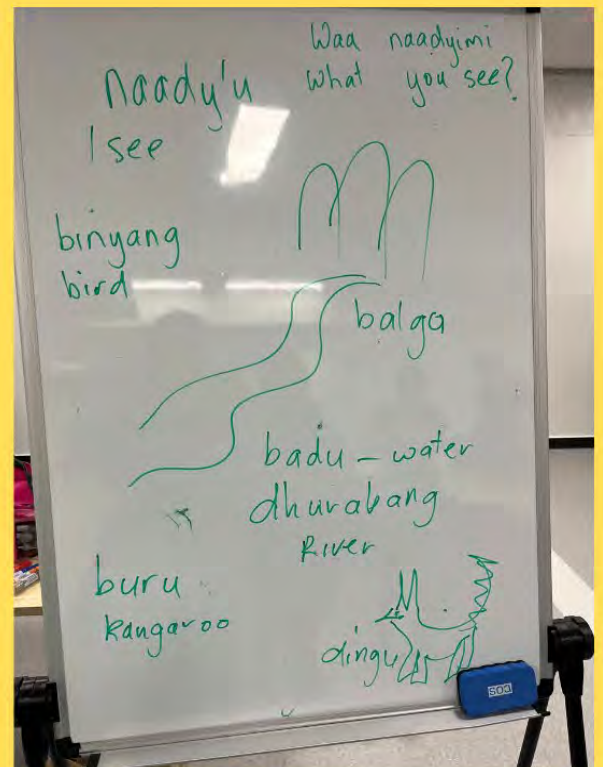 Waa naadyimi
what you see?
naady'u
I see
binyang
bird
balga
badu – water
dhurabang
River
buru
kangaroo
dingu
SDS